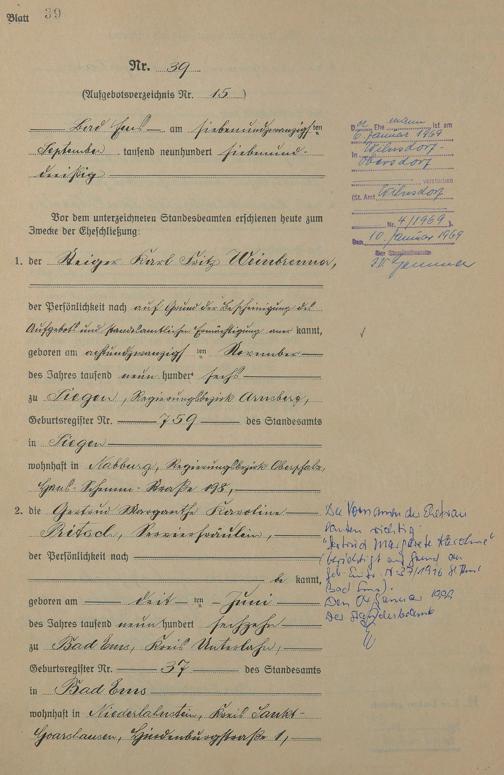 Blatt 39
Nr. 39
(Aufgebotsverzeichnis Nr. 15)
Bad Ems am siebenundzwanzigsten
September tausend neunhundert siebenund-
dreißig
Vor dem unterzeichneten Standesbeamten erschienen heute zum
Zwecke der Eheschließung:
1. der Steiger Karl Fritz Weinbrenner,
der Persönlichkeit nach auf Grund der Bescheinigung des
Aufgebots und standesamtlicher Ermächtigung aner kannt,
geboren am achtundzwanzigsten November
des Jahres tausend neun hundert sechs
zu Siegen, Regierungsbezirk Arnsberg,
Geburtsregister Nr. 759 des Standesamts
in Siegen
wohnhaft in Nabburg, Regierungsbezirk Oberpfalz,
Hans-Schemm-Straße 198,
2. die Gertrud Margarethe Karoline
Servierfräulein,
der Persönlichkeit nach
be kannt,
geboren am ten Juni
des Jahres tausend neun hundert sechzehn
zu Bad Ems, Kreis Unterlahn,
Geburtsregister Nr. 37 des Standesamts
in Bad Ems
wohnhaft in Niederlahnstein, Kreis Sankt-
Goarshausen, Hindenburgstraße 1,
Der Ehemann ist am
6. Januar 1969
in Wilnsdorf-
Obersdorf
verstorben
(St. Amt Wilnsdorf
Nr. 4/1969).
Den 10. Januar 1969
Der Standesbeamte
Die Vornamen der Ehefrau
lauten richtig:
"Gertrud Margarete Karoline"
(berichtigt auf Grund der
Geb. Nr. 37/1916
Bad Ems).
Den Januar
Der Standesbeamte